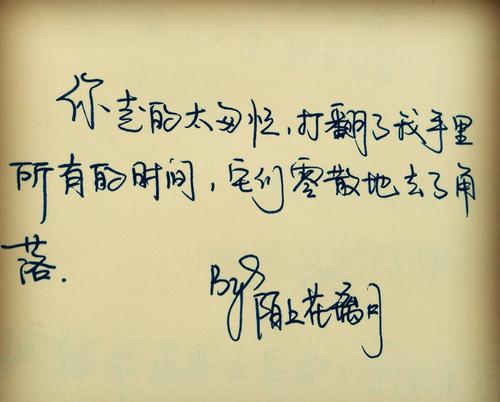 你走的太匆忙，打翻了我手里
所有的时间，它们零散地去了角
落.
By 陌上花